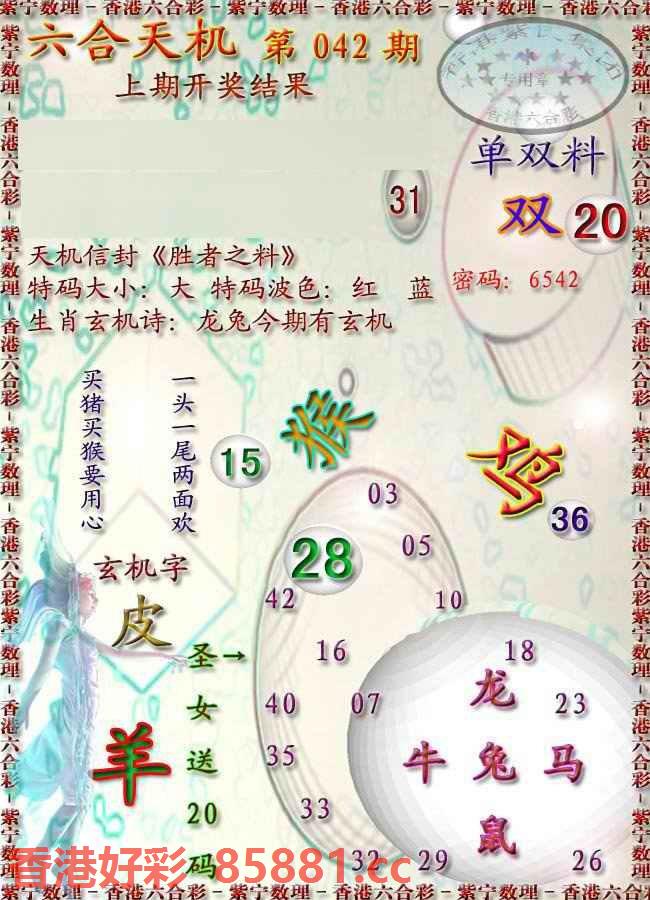 紫宁数理-香港六合彩-紫宁数理-香港六合彩-紫宁数理-香港六合彩
六合天机 第 042 期
上期开奖结果
专用章
香港六合彩
单双料
31
双 20
天机信封《胜者之料》
特码大小：大 特码波色：红 蓝
密码：6542
生肖玄机诗：龙兔今期有玄机
一头一尾两面欢
买猪买猴要用心
15
猴
鸡
36
03
28
05
玄机字
皮
42
10
圣→
女
送
20
码
16
18
龙
40
07
23
羊
35
牛 兔 马
33
鼠
32
29
26
香港好彩 85881.cc
紫宁数理-香港六合彩-紫宁数理-香港六合彩-紫宁数理